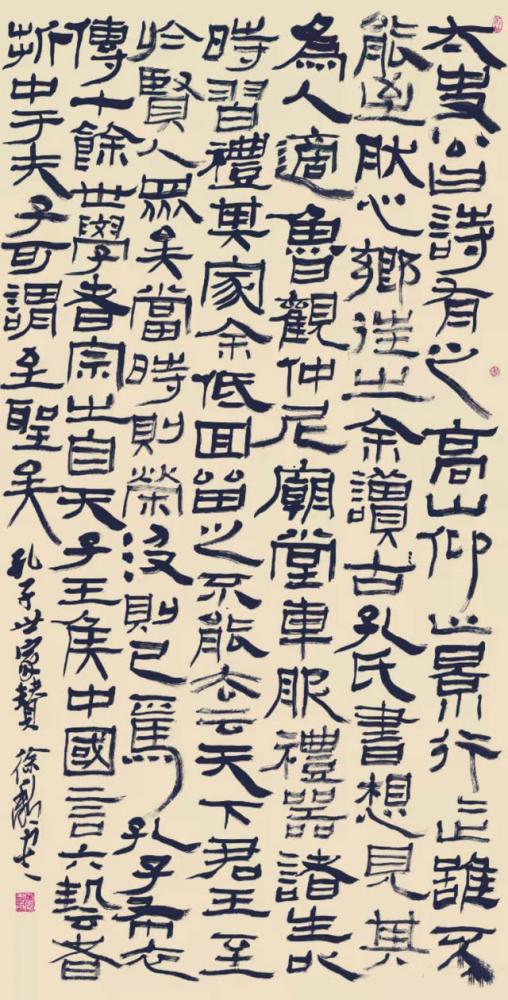 太史公曰詩有之高山仰止景行〻止雖不
能至肰心鄉往之余讀古孔氏書想見其
為人適魯觀仲尼廟堂車服禮器諸生以
時習禮其家余低回留之不能去云天下君王至
於賢人眾矣當時則榮沒則已焉孔子布衣
傳十餘世學者宗之自天子王侯中國言六藝者
折中于夫子可謂至聖矣
孔子世家贊 徐